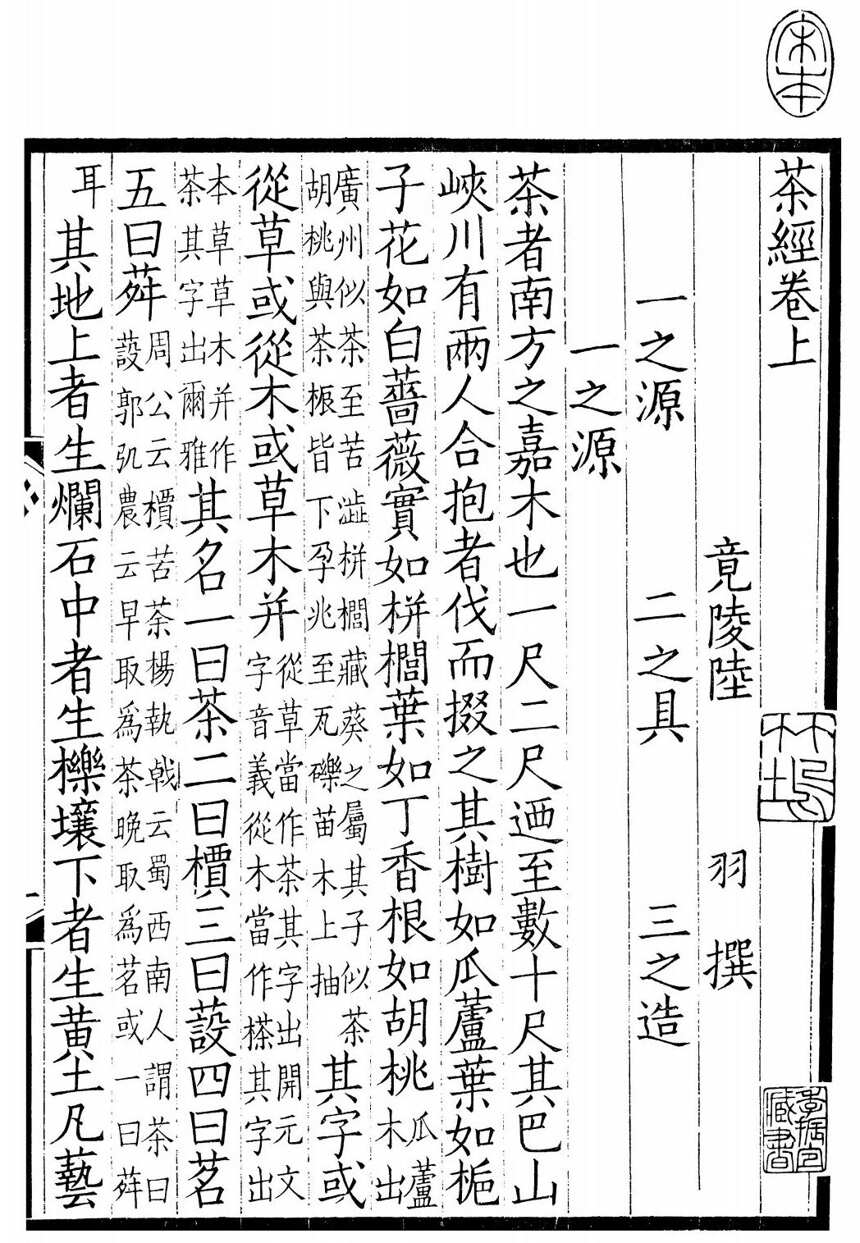 茶經卷上
竟陵陸 羽 撰
一之源 二之具 三之造
一之源
茶者南方之嘉木也一尺二尺迺至數十尺其巴山
峽川有兩人合抱者伐而掇之其樹如瓜蘆葉如梔
子花如白薔薇實如栟櫚葉如丁香根如胡桃瓜蘆木出
廣州似茶至苦澁栟櫚藏葵之屬其子似茶胡桃與茶根皆下孕兆至瓦礫苗木上抽其字或
從草或從木或草木并從草當作茶其字出開元文字音義從木當作𣘻其字出
本草草木并作荼其字出爾雅其名一曰茶二曰檟三曰蔎四曰茗
五曰荈周公云檟苦荼楊執戟云蜀西南人謂茶曰蔎郭弘農云早取爲茶晚取爲茗或一曰荈
耳其地上者生爛石中者生櫟壤下者生黃土凡藝
宋本